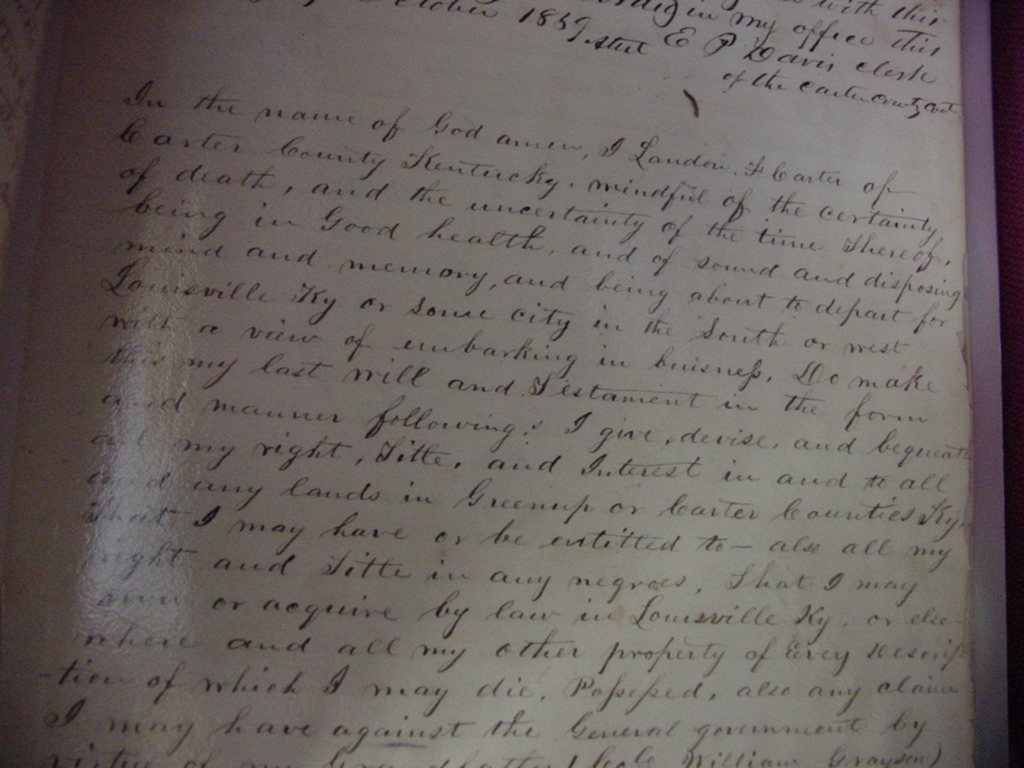 with this
in my office this
October 1839
stest E P Davis clerk
of the Carter County Court
In the name of God amen, I Landon. F Carter of
Carter County Kentucky. mindful of the certainty
of death, and the uncertainty of the time thereof,
being in Good health, and of sound and disposing
mind and memory, and being about to depart for
Louisville Ky or some city in the South or west
with a view of embarking in buisness. Do make
this my last will and Testament in the form
and manner following: I give, devise, and bequeath
all my right, Title, and Interest in and to all
and any lands in Greenup or Carter Counties Ky
that I may have or be entitled to - also all my
right and Title in any negroes, that I may
own or acquire by law in Louisville Ky. or else-
where and all my other property of Every Descrip-
-tion of which I may die, Possessed, also any claim
I may have against the General government by
virtue of my Grandfather (Colo William Grayson)